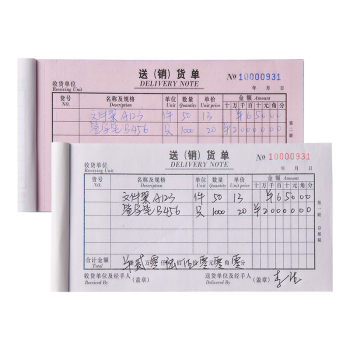 送(销)货单
DELIVERY NOTE
No 10000931
收货单位
Receiving Unit
年 月 日
货号 名称及规格 单位 数量 单价 金额 Amount
NO. Description Unit Quantity Unit price 十 万 千 百 十 元 角 分
文件架A123 件 50 13 ¥65000
B456 1000 20 ¥2000000
送(销)货单
DELIVERY NOTE
No 10000931
收货单位
Receiving Unit
年 月 日
货号 名称及规格 单位 数量 单价 金额 Amount
NO. Description Unit Quantity Unit price 十 万 千 百 十 元 角 分
文件架A123 件 50 13 ¥65000
B456 1000 20 ¥2000000
合计金额
Total
收货单位及经手人 (盖章) 送货单位及经手人 (盖章)
Received By Delivered By